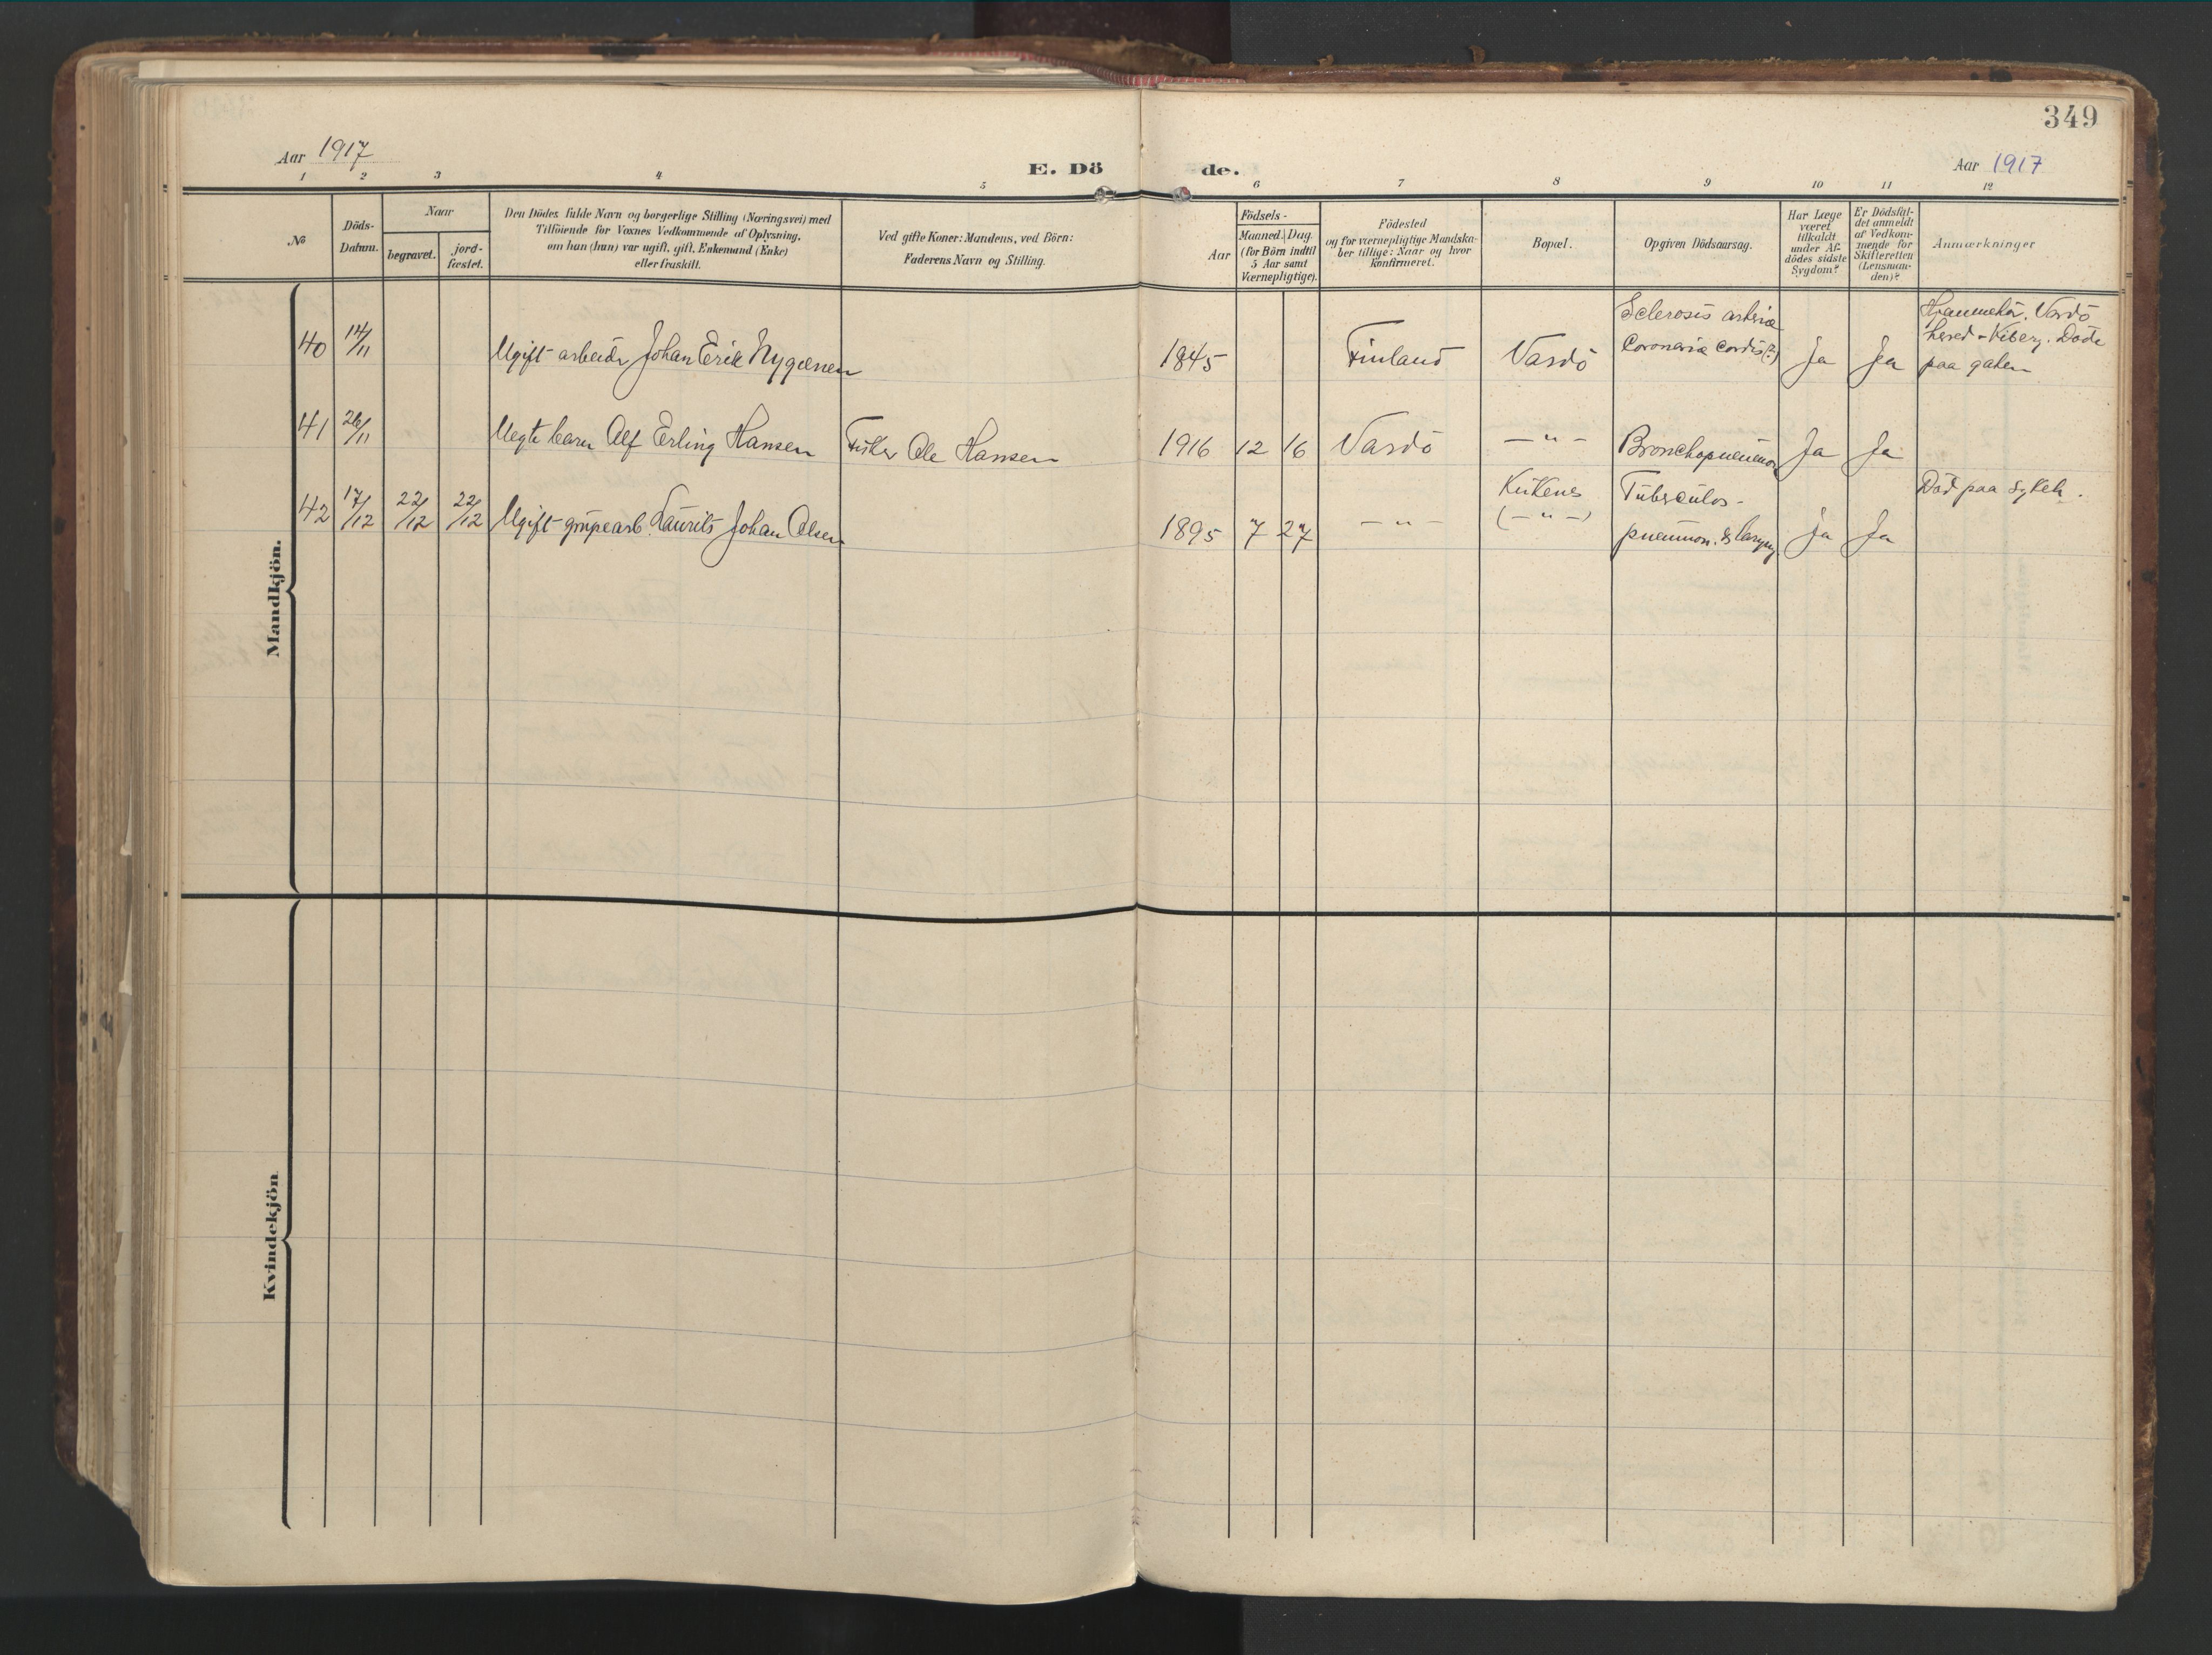 349
Aar 1917
E. Dö
de.
Aar 1917
1 2 3 4 5 6 7 8 9 10 11 12
No
Döds-
Datum.
Naar
begravet.
jord-
fæstet.
Den Dödes fulde Navn og borgerlige Stilling (Næringsvei) med
Tilföiende for Voxnes Vedkommende af Oplysning,
om han (hun) var ugift, gift, Enkemand (Enke)
eller fraskilt.
Ved gifte Koner: Mandens, ved Börn:
Faderens Navn og Stilling.
Födsels-
Aar
Maaned. Dag.
(for Börn indtil
5 Aar samt
Værnepligtige).
Födested
og for værnepligtige Mandska-
ber tillige: Naar og hvor
konfirmeret.
Bopæl.
Opgiven Dödsaarsag.
Har Læge
været
tilkaldt
under Af-
dödes sidste
Sygdom?
Er Dödsfal-
det anmeldt
af Vedkom-
mende for
Skifteretten
(Lensman-
den)?
Anmærkninger
Mandkjön.
40 14/11 Ugift arbeider Johan Erik Nygænen 1845 Finland Vardö
Sclerosis arteriæ
Coronariæ Cordis(?)
Ja Ja
Vardö
hered - Kiberg. Döde
paa gaten
41 26/11 Uegte barn Alf Erling Hansen Fisker Ole Hansen 1916 12 16 Vardö — " — Bronchopneumon Ja Ja
42 17/12 22/12 22/12 Ugift grupearb. Laurits Johan Olsen 1895 7 27 — " —
Kirkenes
(— " —)
Tuberculos-
pneumon. & laryng.
Ja Ja
Död paa sykeh.
Kvindekjön